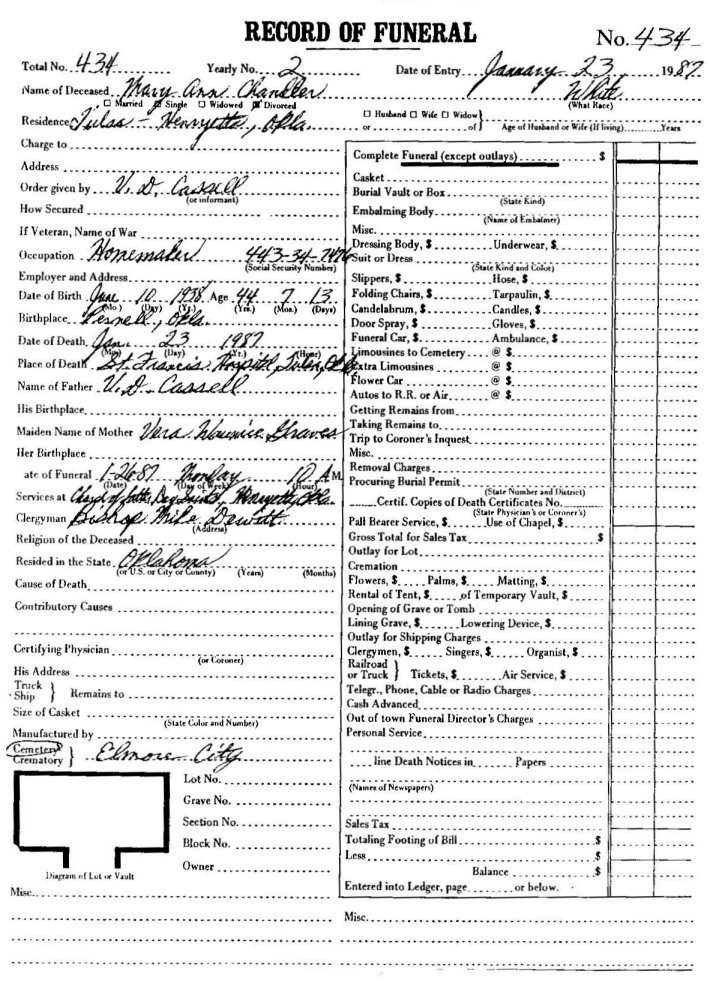 RECORD OF FUNERAL
No. 434
Total No. 434 Yearly No. 2 Date of Entry January 23 1987
Name of Deceased Mary Ann Chandler White
☐ Married ☒ Single ☐ Widowed ☒ Divorced (What Race)
Residence Tulsa - Henryetta, Okla. ☐ Husband ☐ Wife ☐ Widow } or of Age of Husband or Wife (If living) Years
Charge to
Address
Order given by V. D. Cassell
(or informant)
How Secured
If Veteran, Name of War
Occupation Homemaker 443-34-7476
(Social Security Number)
Employer and Address
Date of Birth June 10 1938 Age 44 7 13
(Mo.) (Day) (Yr.) (Yrs.) (Mos.) (Days)
Birthplace Pernell, Okla.
Date of Death Jan. 23 1987
(Mo) (Day) (Yr.) (Hour)
Place of Death St. Francis Hospital, Tulsa, Okla
Name of Father V. D. Cassell
His Birthplace
Maiden Name of Mother Vera Graves
Her Birthplace
ate of Funeral 1-26-87 Monday 10 A M
(Date) (Day of Week) (Hour)
Services at Henryetta, Okla.
Clergyman Bishop Mike Dewitt
(Address)
Religion of the Deceased
Resided in the State Oklahoma
(or U.S. or City or County) (Years) (Months)
Cause of Death
Contributory Causes
Certifying Physician
(or Coroner)
His Address
Truck } Ship Remains to
Size of Casket
(State Color and Number)
Manufactured by
Cemetery } Crematory Elmore City
Lot No.
Grave No.
Section No.
Block No.
Owner
Diagram of Lot or Vault
Misc.
Complete Funeral (except outlays) $
Casket
Burial Vault or Box
(State Kind)
Embalming Body
(Name of Embalmer)
Misc.
Dressing Body, $ Underwear, $
Suit or Dress
(State Kind and Color)
Slippers, $ Hose, $
Folding Chairs, $ Tarpaulin, $
Candelabrum, $ Candles, $
Door Spray, $ Gloves, $
Funeral Car, $ Ambulance, $
Limousines to Cemetery @ $
Extra Limousines @ $
Flower Car @ $
Autos to R.R. or Air @ $
Getting Remains from
Taking Remains to
Trip to Coroner's Inquest
Misc.
Removal Charges
Procuring Burial Permit
(State Number and District)
Certif. Copies of Death Certificates No.
(State Physician's or Coroner's)
Pall Bearer Service, $ Use of Chapel, $
Gross Total for Sales Tax $
Outlay for Lot
Cremation
Flowers, $ Palms, $ Matting, $
Rental of Tent, $ of Temporary Vault, $
Opening of Grave or Tomb
Lining Grave, $ Lowering Device, $
Outlay for Shipping Charges
Clergymen, $ Singers, $ Organist, $
Railroad } or Truck Tickets, $ Air Service, $
Telegr., Phone, Cable or Radio Charges
Cash Advanced
Out of town Funeral Director's Charges
Personal Service
line Death Notices in Papers
(Names of Newspapers)
Sales Tax
Totaling Footing of Bill $
Less $
Balance $
Entered into Ledger, page or below.
Misc.